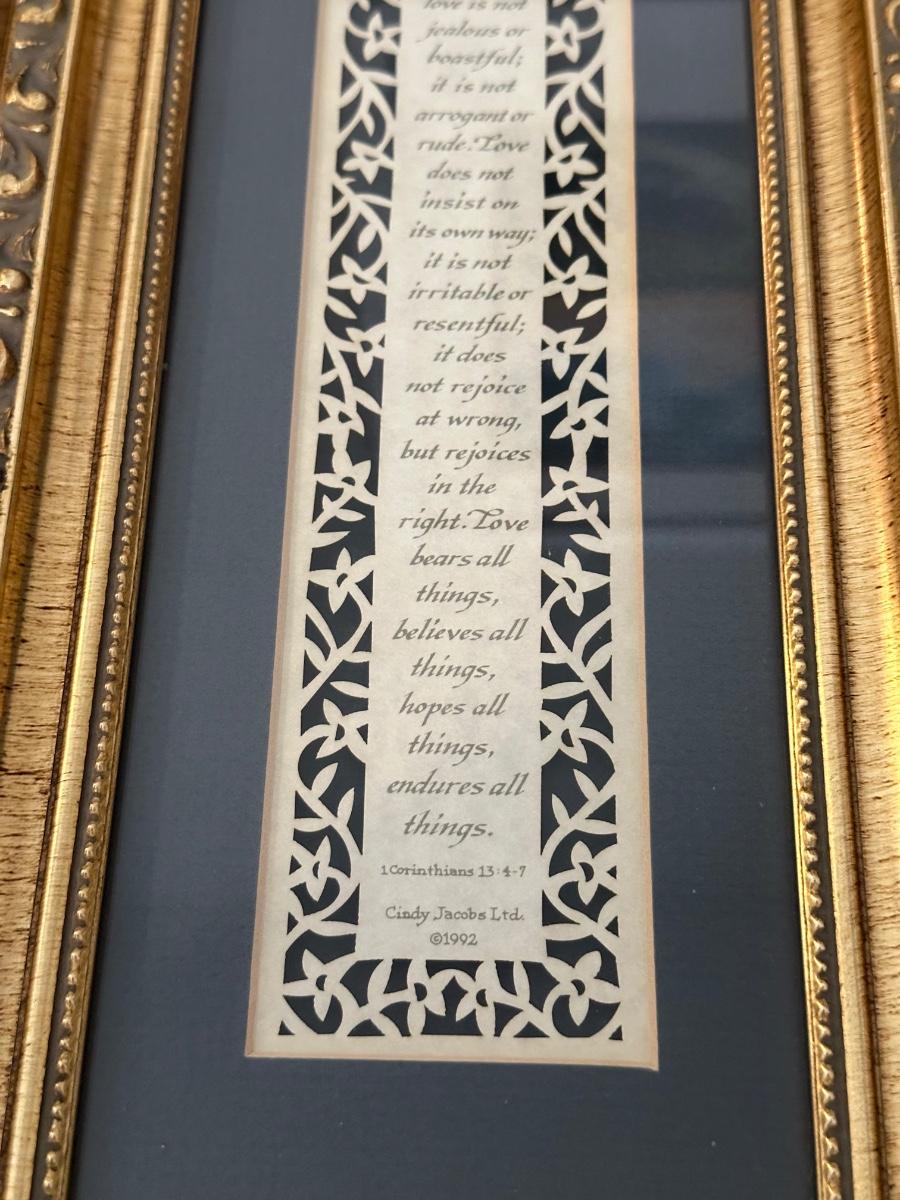 love is not
jealous or
boastful;
it is not
arrogant or
rude. Love
does not
insist on
its own way;
it is not
irritable or
resentful;
it does
not rejoice
at wrong,
but rejoices
in the
right. Love
bears all
things,
believes all
things,
hopes all
things,
endures all
things.
1 Corinthians 13:4-7
Cindy Jacobs Ltd.
©1992